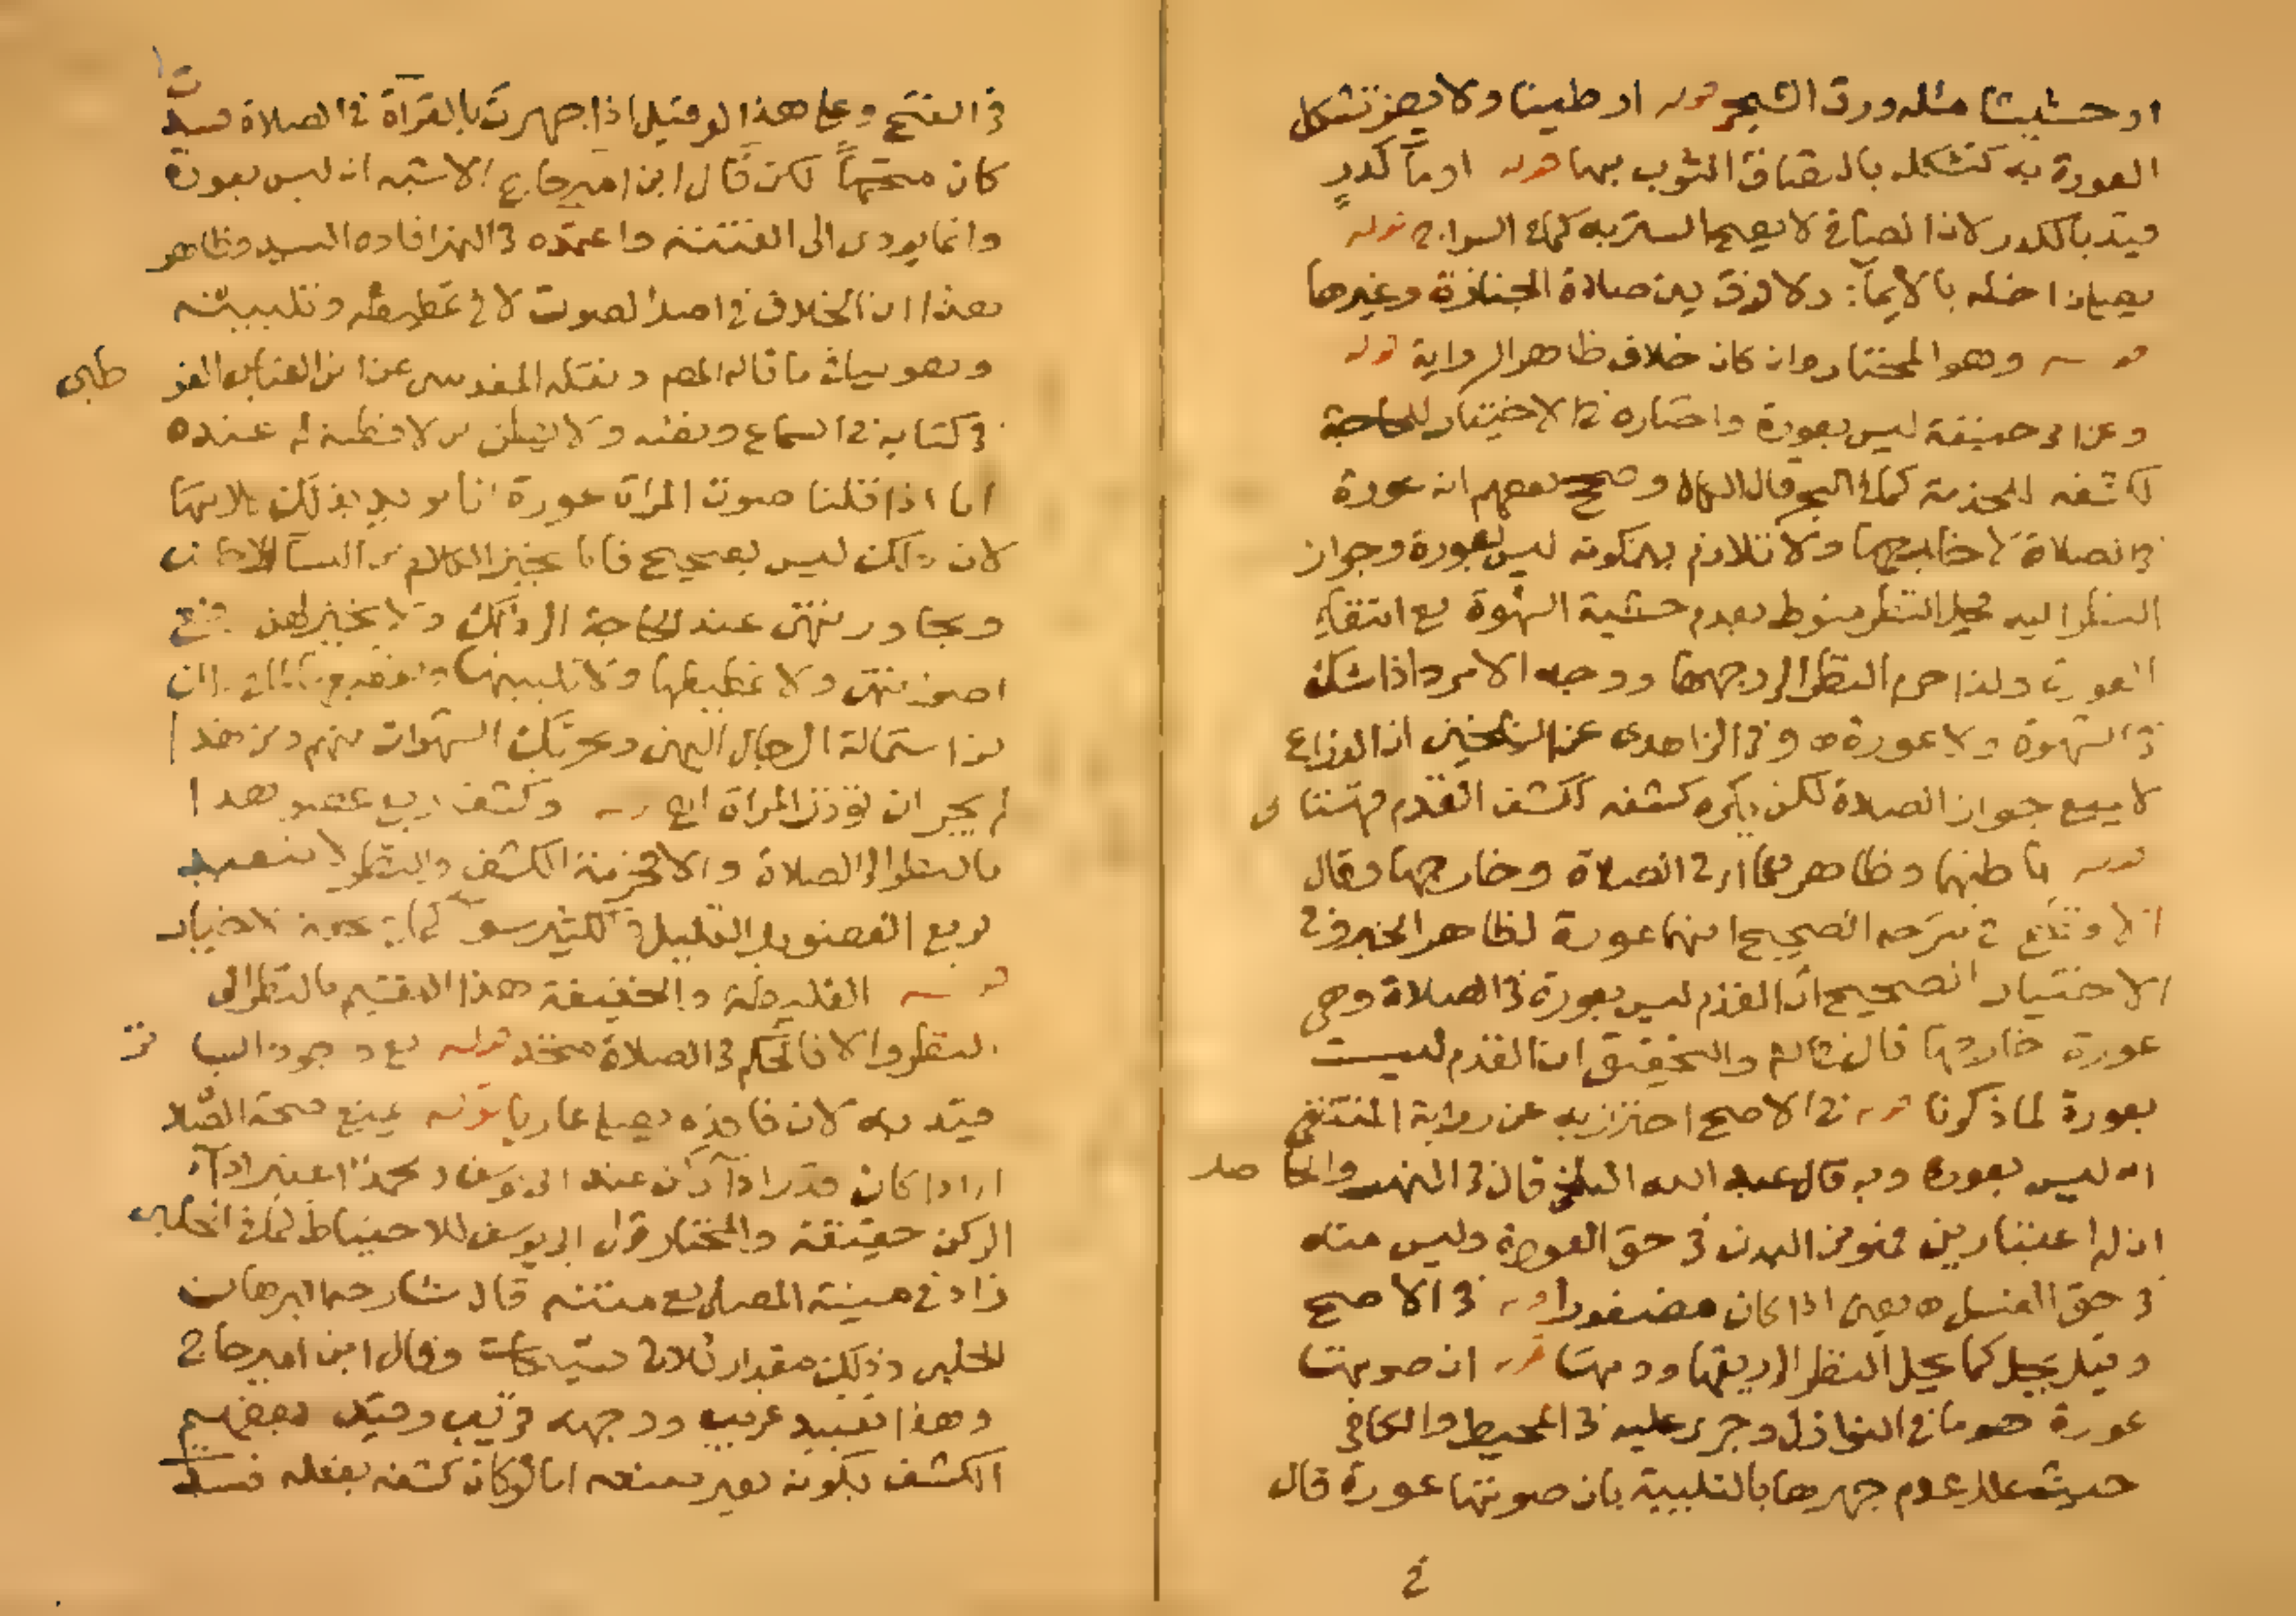 او حشيشا مثله ورق الشجر قوله او طينا ولا يضر تشكل
العورة به كتشكله بالتصاق الثوب بها قوله او ماء كدر
قيد بالكدر لان الصافي لا يصح الستر به كما في السراج قوله
يصلي داخله بالايماء ولا فرق بين صلاة الجنازة وغيرها
قوله وهو المختار وان كان خلاف ظاهر الرواية قوله
وعن ابي حنيفة ليس بعورة واختاره في الاختيار للحاجة
لكشفه للخدمة كما في البحر قال الكمال وصحح بعضهم انه عورة
في الصلاة لا خارجها ولا تلازم بين كونه ليس بعورة وجواز
النظر اليه فحل النظر منوط بعدم خشية الشهوة مع انتفاء
العورة ولذا حرم النظر الى وجهها ووجه الامرد اذا شك
في الشهوة ولا عورة اه وفي الزاهدي عن الشيخين ان الذراع
لا يمنع جواز الصلاة لكن يكره كشفه ككشف القدم قهستاني
قوله باطنها وظاهرهما اي في الصلاة وخارجها وقال
الاقطع في شرحه الصحيح انها عورة لظاهر الخبر وفي
الاختيار الصحيح ان القدم ليس بعورة في الصلاة وهي
عورة خارجها قال والتحقيق ان القدم ليست
بعورة لما ذكرنا قوله في الاصح احترز به عن رواية المنتقى
انه ليس بعورة وبه قال عبد الله البلخي قال في النهر والحاصل
ان له اعتبارين فهو من البدن في حق العورة وليس منه
في حق الغسل اه يعني اذا كان مضفورا قوله في الاصح
وقيل يحل كما يحل النظر الى ريقها ودمها قوله ان صوتها
عورة هو ما في النوازل وجرى عليه في المحيط والكافي
حيث علل عدم جهرها بالتلبية بان صوتها عورة قال
في
في الفتح وعلى هذا لو قيل اذا جهرت بالقراءة في الصلاة فسدت
كان متجها لكن قال ابن امير حاج الاشبه انه ليس بعورة
وانما يؤدي الى الفتنة واعتمده في النهر افاده السيد وظاهر
هذا ان الخلاف في اصل الصوت لا في تمطيطه وتليينه
وهو بيان ما قاله المص ونقله المقدسي عن ابي العباس القرطبي
في كتابه في السماع ونصه ولا يظن من لا فطنة له عنده
انا اذا قلنا صوت المراة عورة انا نريد بذلك كلامها
لان ذلك ليس بصحيح فانا نجيز الكلام مع النساء الاجانب
ومحاورتهن عند الحاجة الى ذلك ولا نجيز لهن رفع
اصواتهن ولا تمطيطها ولا تليينها وتقطيعها لما في ذلك
من استمالة الرجال اليهن وتحريك الشهوات منهم ومن هذا
لم يجز ان تؤذن المراة اه قوله وكشف ربع عضو هذا
بالنظر الى الصلاة والا فحرمة الكشف والنظر لا تتقيد
بربع العضو بل القليل والكثير سواء
قوله الغليظة والخفيفة هذا التقسيم بالنظر الى
النظر والا فالحكم في الصلاة متحد قوله مع وجود الساتر
قيد به لان فاقده يصلي عاريا قوله يمنع صحة الصلاة
اي اذا كان قدر اداء ركن عند ابي يوسف ومحمد اعتبر اداء
الركن حقيقة والمختار قول ابي يوسف للاحتياط كما في الحلبي
زاد في منية المصلي مع سنته قال شارحها البرهان
الحلبي وذلك مقدار ثلاث تسبيحات وقال ابن امير حاج
وهذا تقييد غريب ووجهه قريب وقيد بعضهم
الكشف بكونه بغير صنعه اما لو كان كشفه بفعله فسدت